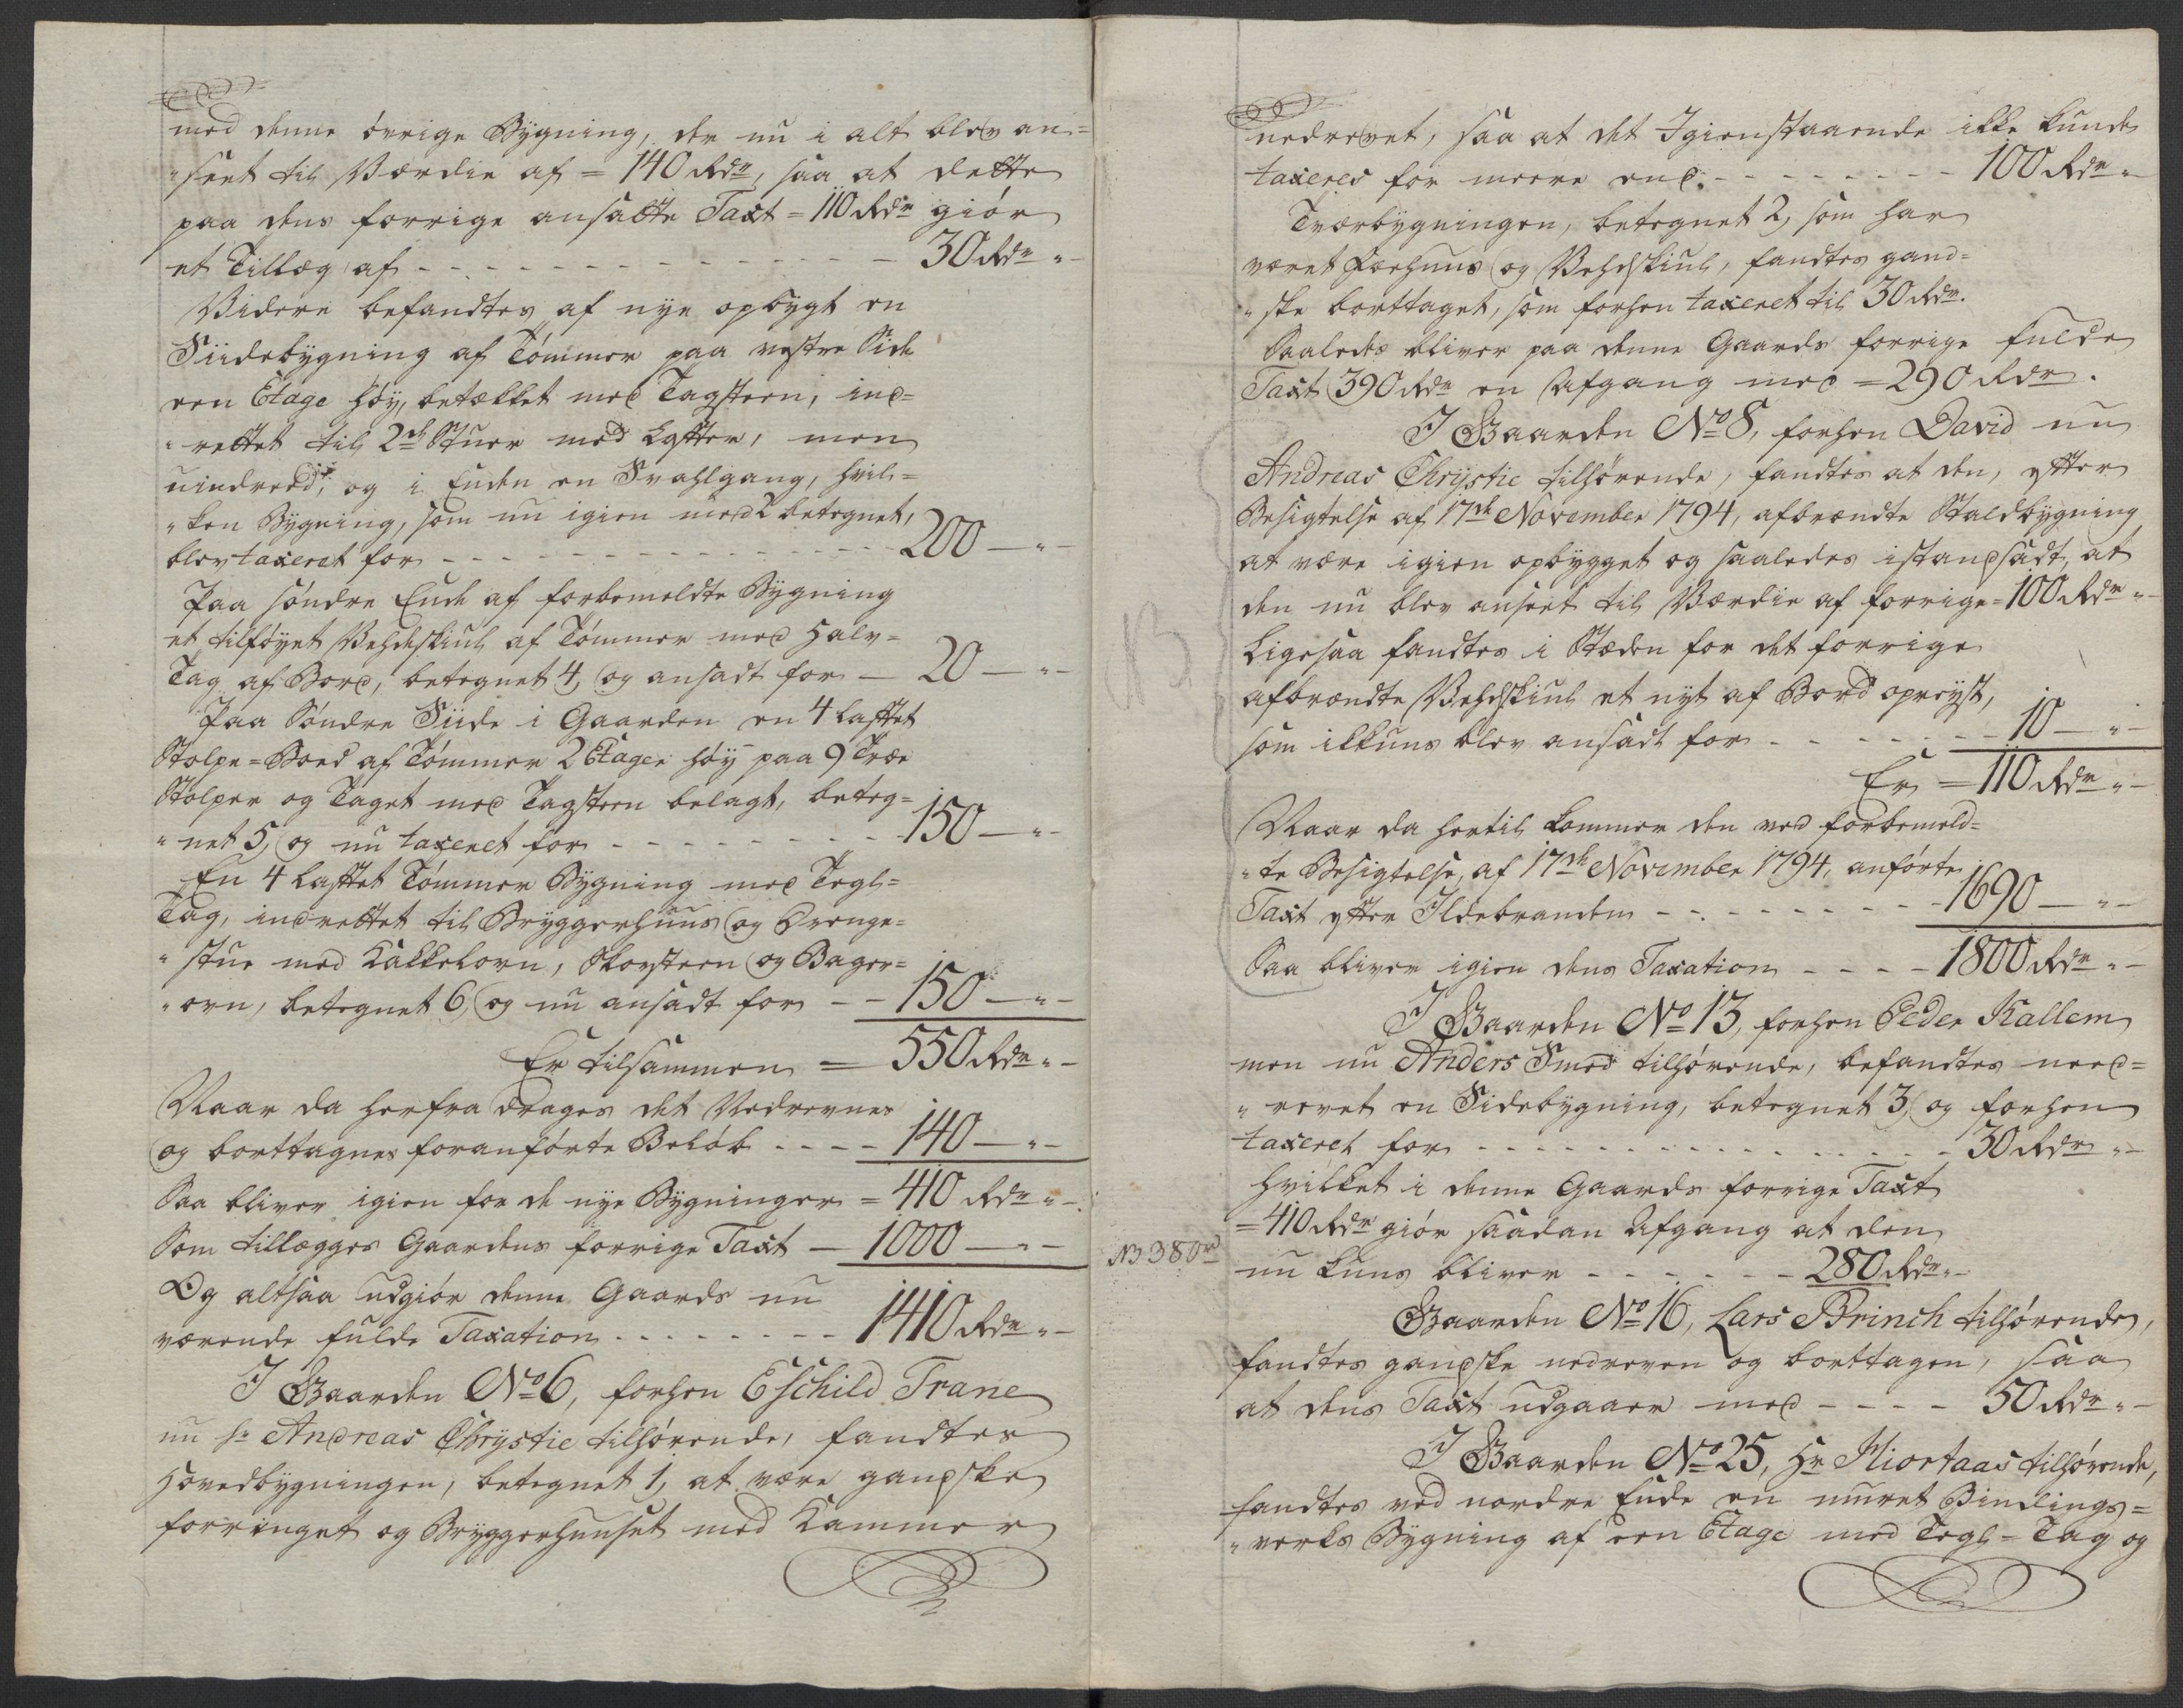 med denne övrige Bÿgning, der nu i alt blev an=
"seet til Værdie af = 140 Rdr, saa at dette
paa dens forrige ansatte Taxt = 110 Rdr giör
et Tillæg af - - - - - - - - - - 30 Rdr " -
Videre befandtes af nye opbygt en
Siidebÿgning af Tömmer paa vestre Side
een Etage höÿ, betækket med Tagsteen, ind=
"rettet til 2de Stuer med Lofter, men
uindreed, og i Enden en Svahlgang, hvil=
"ken Bÿgning, som nu igien med 2 betegnet,
blev taxeret for - - - - - - - - - - 200 — " -
Paa söndre Ende af forbemeldte Bÿgning
et tilföÿet Vehdskiul af Tömmer med Halv=
Tag af Bord, betegnet 4, og ansadt for — 20 — " -
Paa Söndre Siide i Gaarden en 4 laftet
Stolpe=Boed af Tömmer 2 Etager höÿ paa 9 Træe
Stolper og Taget med Tagsteen belagt, beteg=
"net 5, og nu taxeret for - - - - - - - 150 — " -
En 4 laftet Tömmer Bÿgning med Tegl=
Tag, indrettet til Brÿggerhuus og Drenge=
"stue med Kakkelovn, Skorsteen og Bager=
"ovn, betegnet 6, og nu ansadt for - - 150 — " -
Er tilsammen = 550 Rdr " -
Naar da herfra drages det Nedrevnes
og borttagnes foranförte Belöb - - - - 140 — " -
Saa bliver igien for de nye Bÿgninger = 410 Rdr " -
Som tillægges Gaardens forrige Taxt — 1000 — " -
Og altsaa udgiör denne Gaards nu
værende fulde Taxation - - - - - - - 1410 Rdr " -
I Gaarden No 6, forhen Eschild Trane
nu Hr Andreas Chrÿstie tilhörende, fandtes
Hovedbÿgningen, betegnet 1, at være gandske
forringet og Brÿggerhuuset med Kammer
nedrevet, saa at det Igienstaaende ikke kunde
taxeres for meere end - - - - - - - - 100 Rdr " -
Tværbÿgningen, betegnet 2, som har
været Fæehuus og Vehdskiul, fandtes gand=
"ske borttaget, som forhen taxeret til 30 Rdr.
Saaledes bliver paa denne Gaards forrige fulde
Taxt 390 Rdr en Afgang med = 290 Rdr.
I Gaarden No 8, forhen David nu
Andreas Chrÿstie tilhörende, fandtes at den, efter
Besigtelse af 17de November 1794, afbrændte Staldbÿgning
at være igien opbÿgget og saaledes istandsadt, at
den nu blev anseet til Værdie af forrige = 100 Rdr " -
Ligesaa fandtes i Stæden for det forrige
afbrændte Vehdskiul et nÿt af Bord opreÿst,
som ikkuns blev ansadt for - - - - - - - 10 — " -
Er = 110 Rdr " -
Naar da hertil kommer den ved forbemeld=
"te Besigtelse, af 17de November 1794, anförte
Taxt efter Ildebranden - - - - - - - - 1690 — " -
Saa bliver igien dens Taxation - - - - 1800 Rdr " -
I Gaarden No 13, forhen Peder Kallem
men nu Anders Smed tilhörende, befandtes need=
"revet en Sidebÿgning, betegnet 3, og forhen
taxeret for - - - - - - - - - - - - 30 Rdr " -
hvilket i denne Gaards forrige Taxt
= 410 Rdr giör saadan Afgang at den
NB 380 rd
nu kuns bliver - - - - - - 280 Rdr " -
Gaarden No 16, Lars Brinch tilhörende,
fandtes gandske nedreven og borttagen, saa
at dens Taxt udgaaer med - - - - 50 Rdr " -
I Gaarden No 25, Hr Hiortaas tilhörende,
fandtes ved nordre Ende en muret Bindings=
"verks Bÿgning af een Etage med Tegl=Tag og